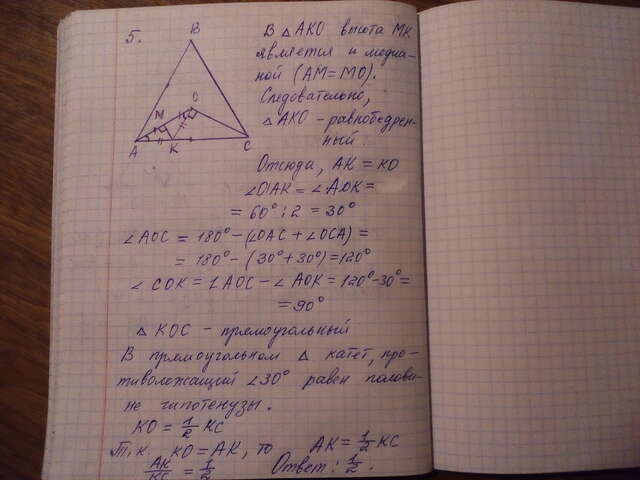 5.
B
M
O
A
K
C
В △ AKO высота MK
является и медиа-
ной (AM=MO).
Следовательно,
△ AKO - равнобедрен-
ный.
Отсюда, AK = KO
∠OAK = ∠AOK =
= 60° : 2 = 30°
∠AOC = 180° - (∠OAC + ∠OCA) =
= 180° - (30° + 30°) = 120°
∠ COK = ∠AOC - ∠ AOK = 120° - 30° =
= 90°
△ KOC - прямоугольный
В прямоугольном △ катет, про-
тиволежащий ∠30° равен полови-
не гипотенузы.
KO = 1/2 KC
Т.к. KO = AK, то AK = 1/2 KC
AK/KC = 1/2 Ответ: 1/2.